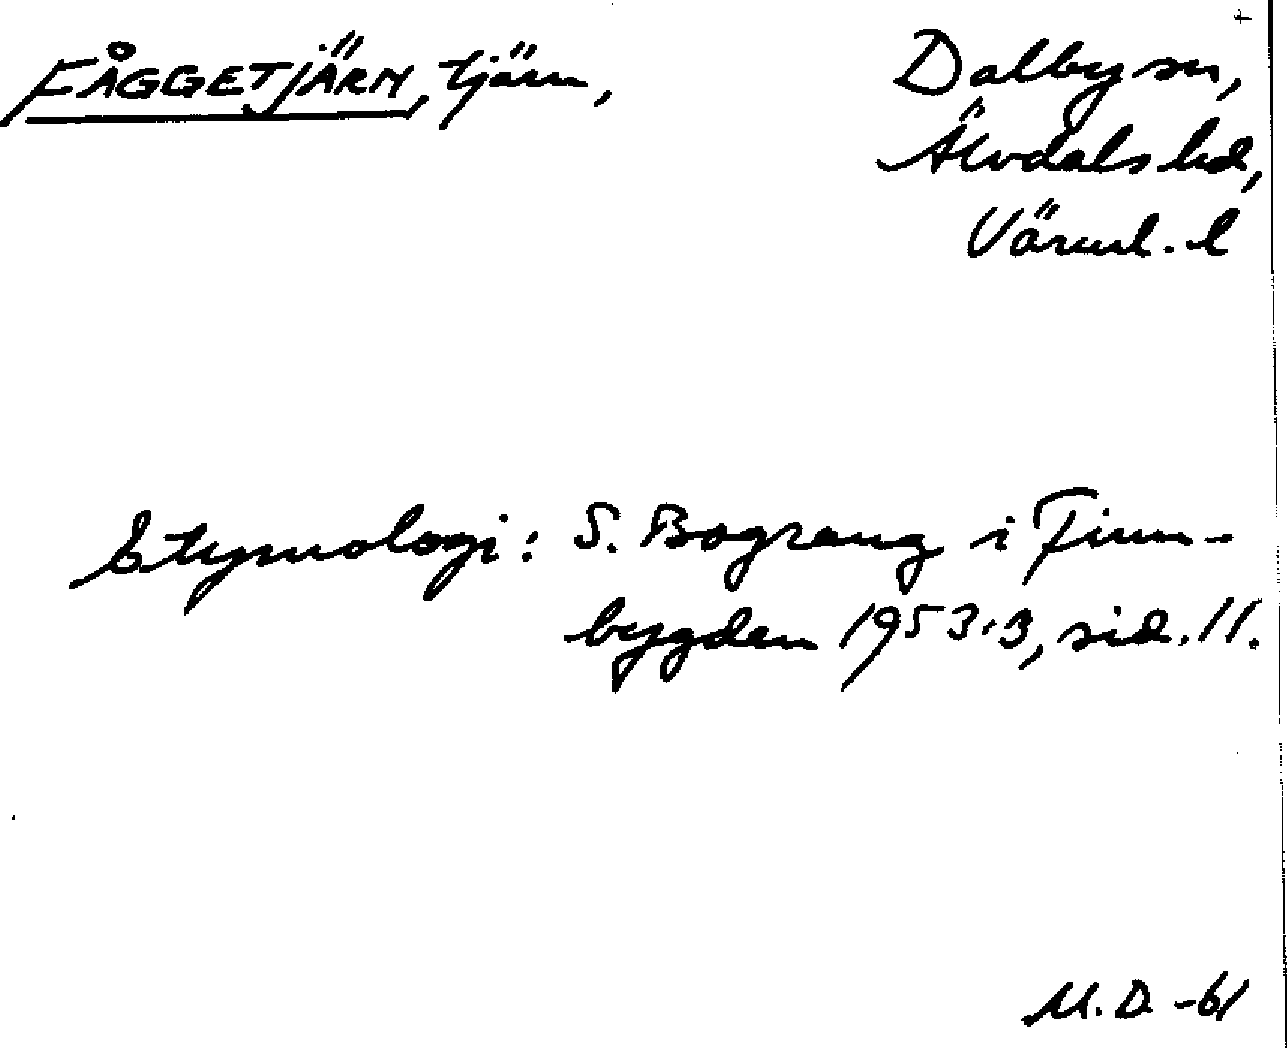 FÅGGETJÄRN, tjärn,
Dalby sn,
Älvdals hd,
Värml. l
Etymologi: S. Bograng i Finn-
bygden 1953:3, sid. 11.
M.D -61